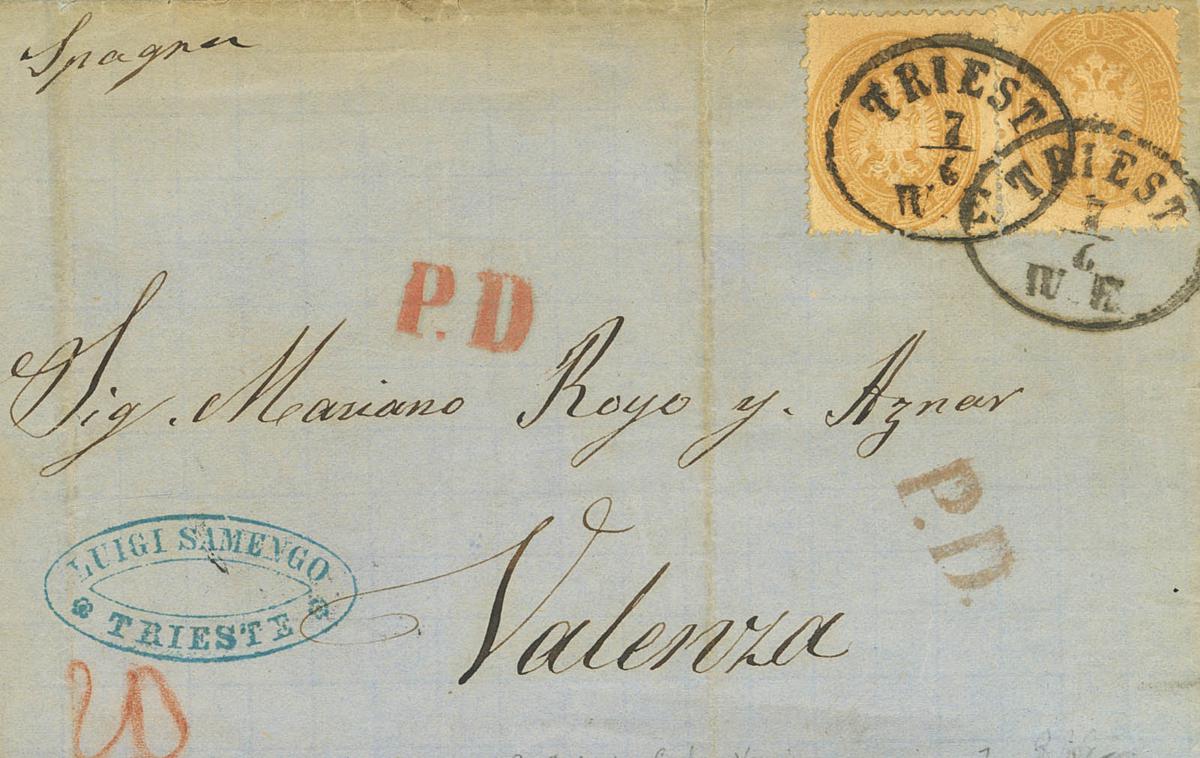 Spagna
TRIEST
7
6
IV. E
TRIEST
7
6
IV. E.
P.D
Sig. Mariano Royo y. Aznar
P.D.
Valenza
LUIGI SAMENGO
TRIESTE
20